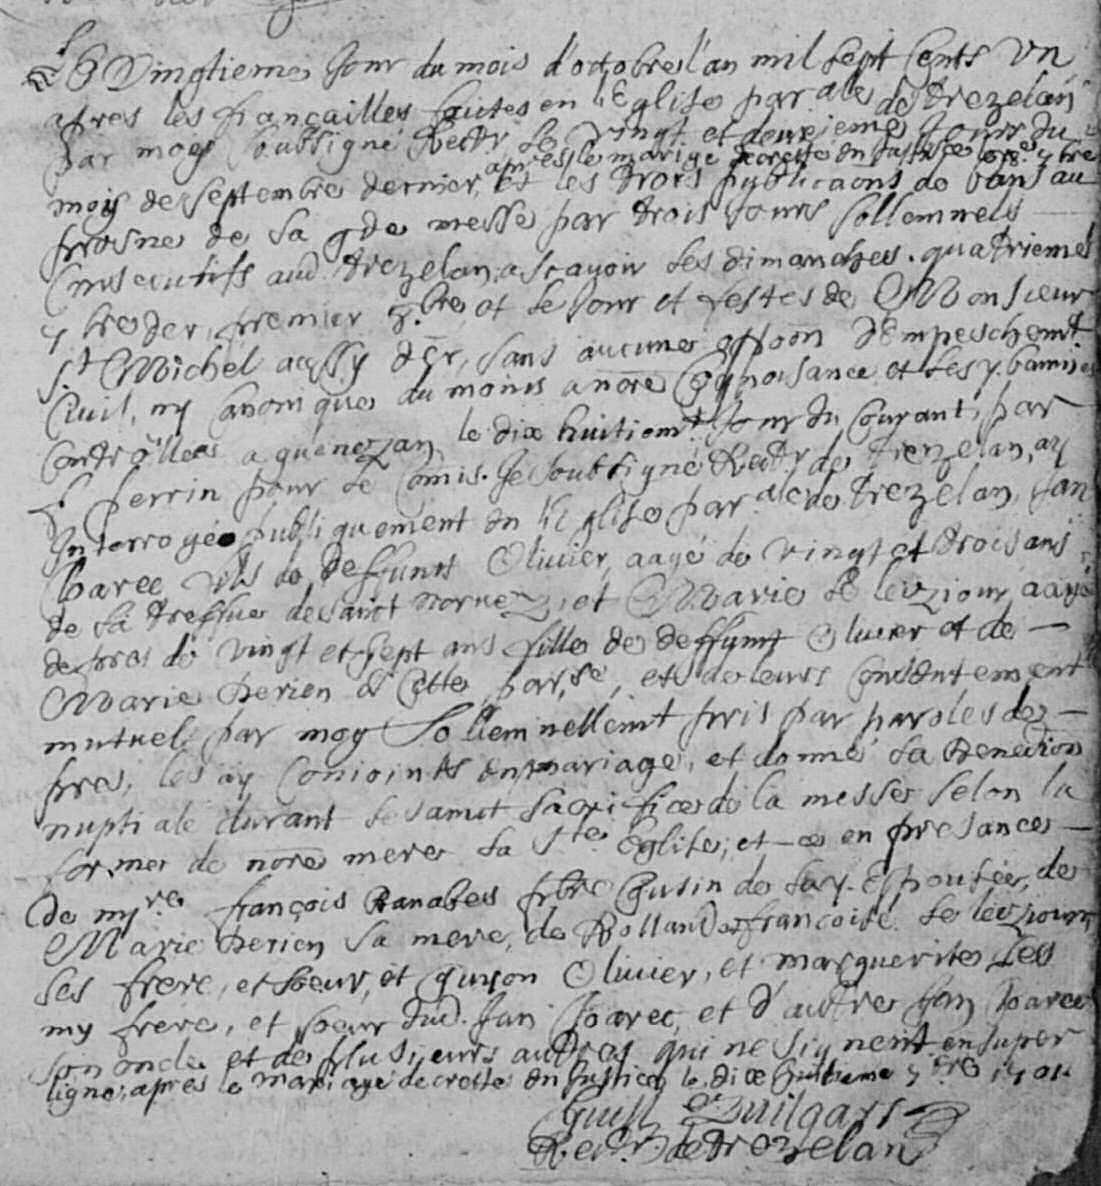 Le Vingtieme Jour du mois d'octobre l'an mil sept cents Un
apres les fiançailles faites en l'Eglise par.ale de Trezelan
par moy soubsigné Rectr le vingt et deuxieme Jour du
apres le mariage decretté en Justice
mois de septembre dernier, Et les trois publicaons de bans au
prosne de la gde messe par trois Jours sollemnels
Consecutifs aud. Trezelan, ascavoir les dimanches quatriemes
7bre der, premier 8.bre et le Jour et festes de Monsieur
St Michel aussy der, sans aucune oppoon d'Empeschemt
Civil, ny canonique du moins a nore Cognoisance et les bannies
Controllees a guenezan le dix huitiemt Jour du Courant, par
f. perrin pour le Comis. Je soubsigné Rectr de Trezelan, ay
Interrogé publiquement en l'Eglise par.ale de Trezelan, Jan
Charee fils de deffunt Olivier, aagé de vingt et trois ans
de la Treffve de sainct norvez, et Marie le levziour, aagé
de pres de vingt et sept ans fille de deffunt Olivier et de
Marie Derien de cette parsse, et de leurs Consentement
mutuel par moy Sollemnellemt pris par paroles de
pres, les ay Conjoints en mariage, et donné la Benedion
nuptiale durant le sainct sacrifice de la messe selon la
forme de nore mere la Ste Eglise; et ce en presance
de myre françois Ranabes pbre Cousin de lay. Espousée, de
Marie Derien sa mere, de Rolland et francoise le levziour
ses frere, et soeur, et quyon Olivier, et marguerite Les
my frere, et soeur dud. Jan Charee, et d'autre Jan Charee
son oncle et de plusieurs autres qui ne signent, en super
ligne, apres le mariage decretté en Justice le dix huitieme 7bre 1701.
Guill Quilgars
Rectr de Trezelan